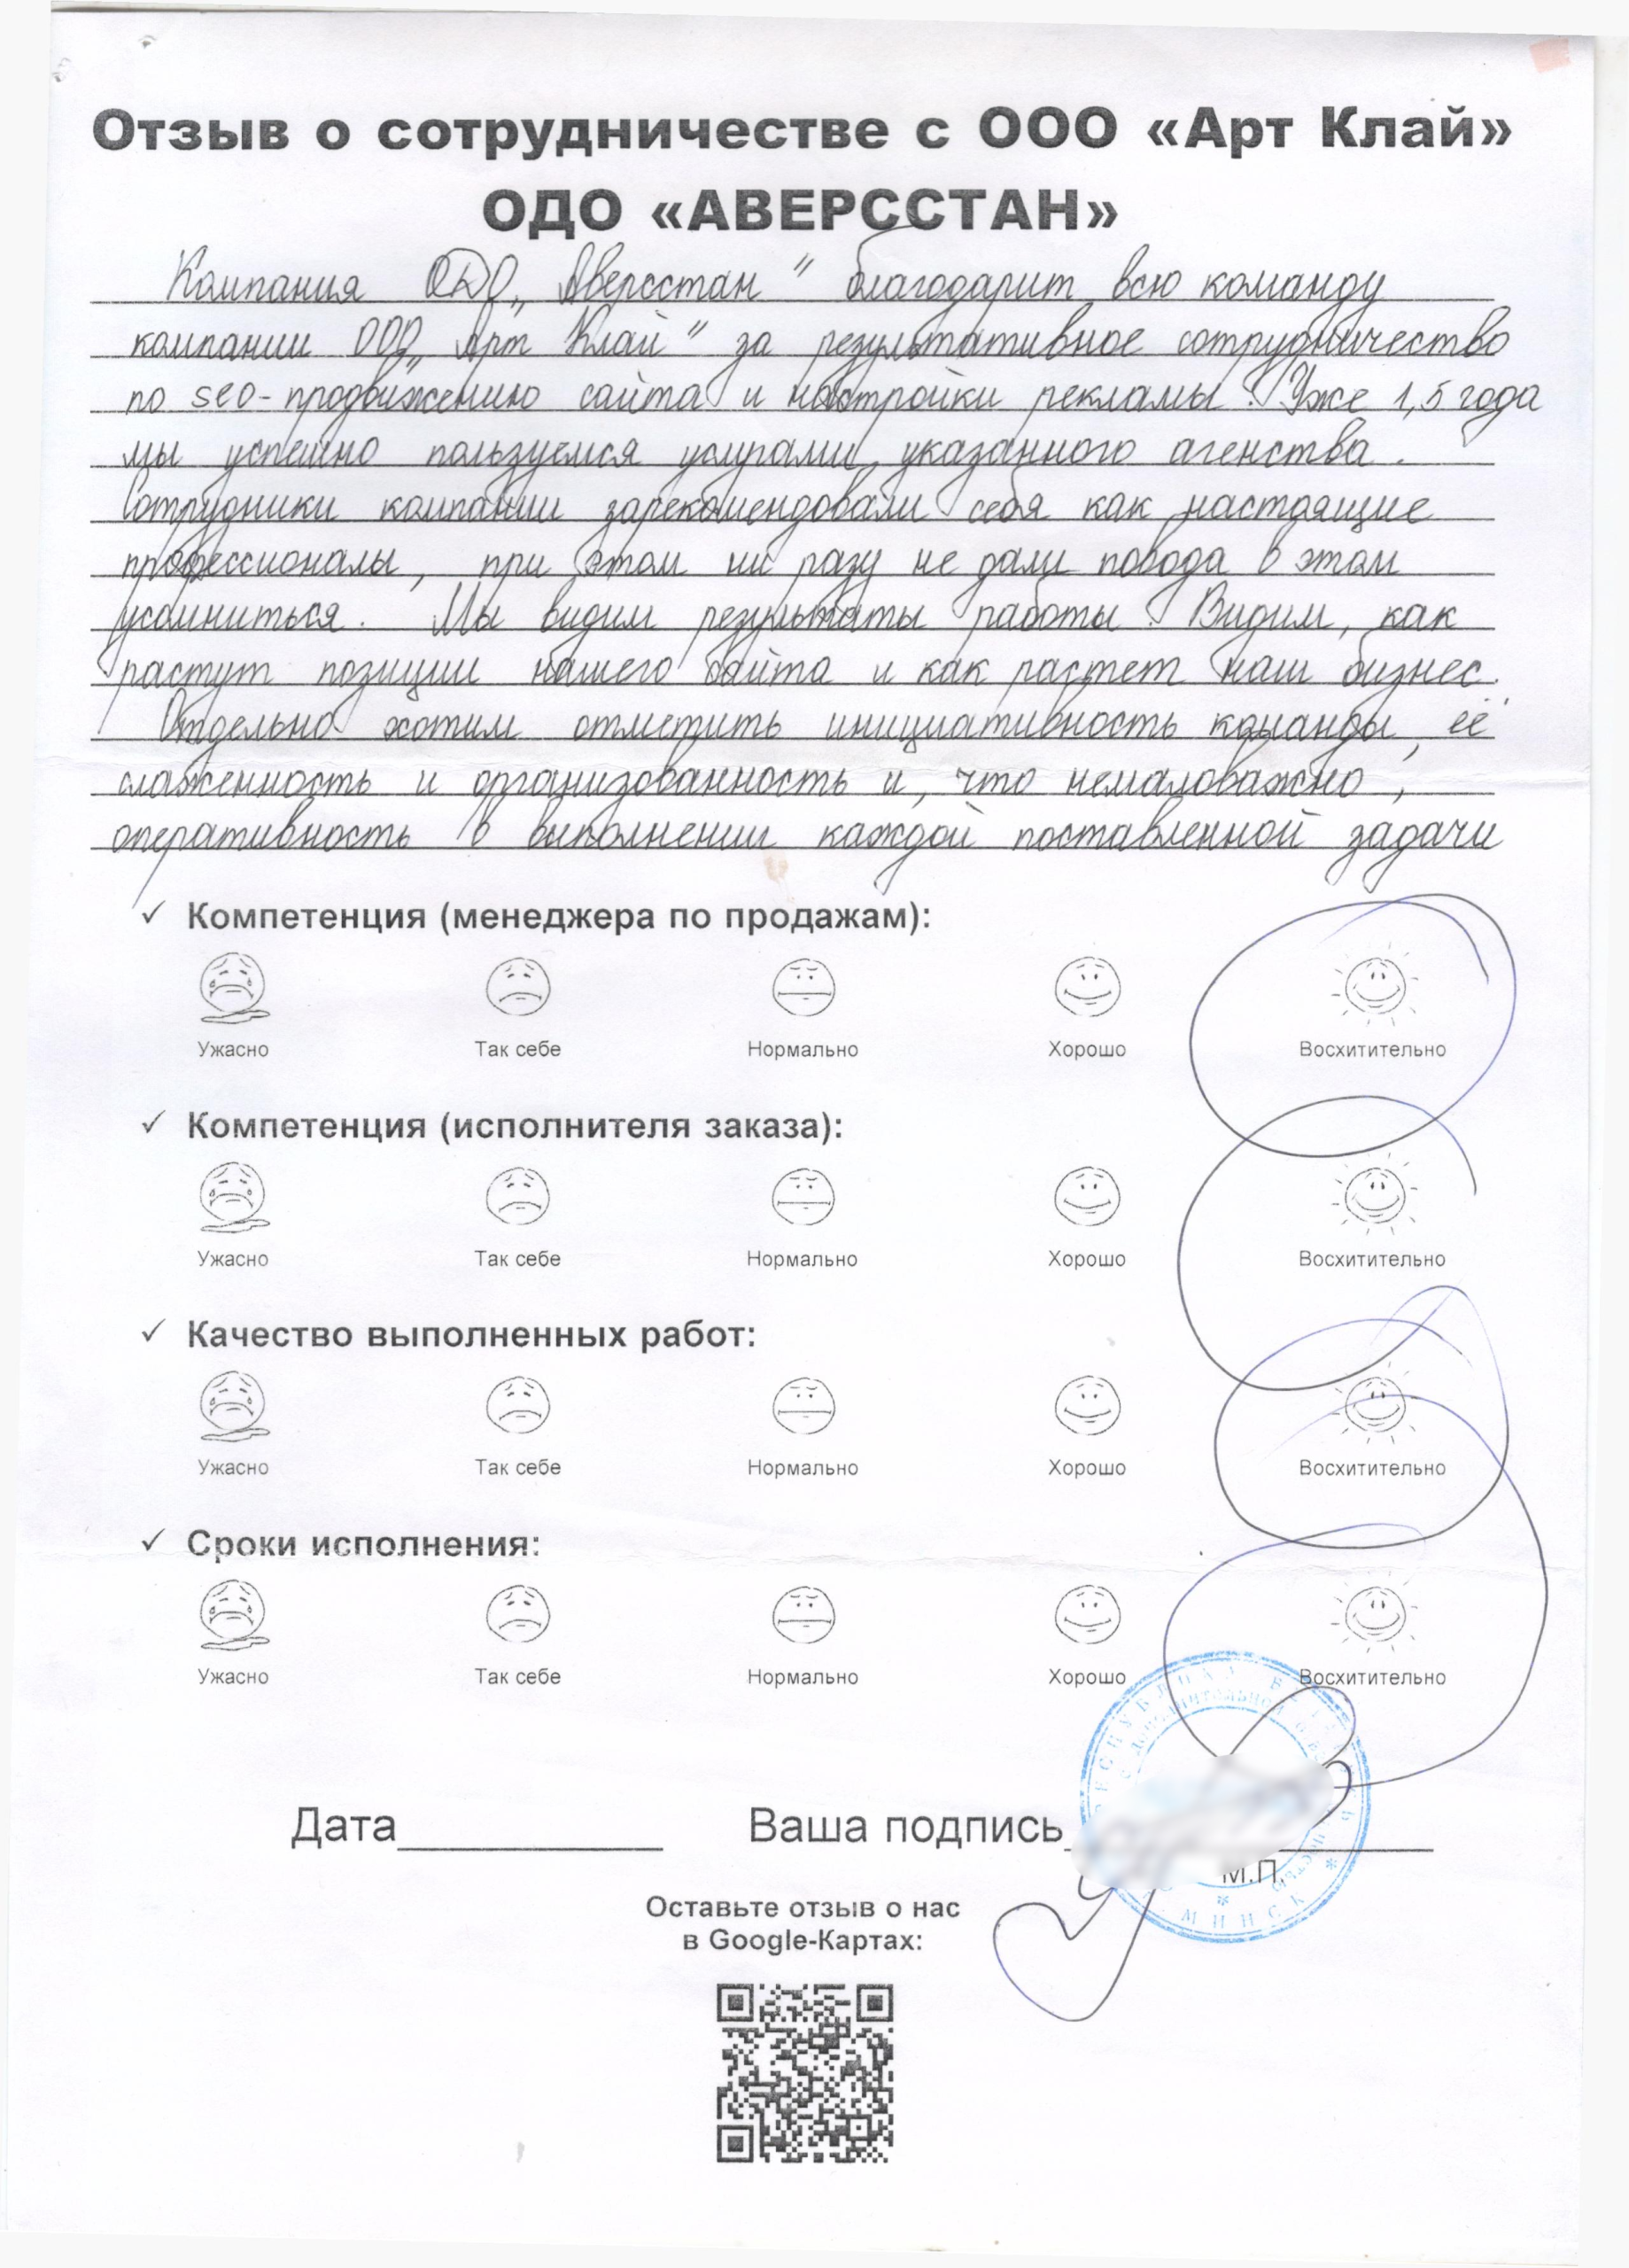 Отзыв о сотрудничестве с ООО «Арт Клай»
ОДО «АВЕРССТАН»
Компания ОДО „Аверсстан" благодарит всю команду
компании ООО „Арт Клай" за результативное сотрудничество
по seo-продвижению сайта и настройки рекламы. Уже 1,5 года
мы успешно пользуемся услугами указанного агенства.
Сотрудники компании зарекомендовали себя как настоящие
профессионалы, при этом ни разу не дали повода в этом
усомниться. Мы видим результаты работы. Видим, как
растут позиции нашего сайта и как растет наш бизнес.
Отдельно хотим отметить инициативность команды, её
слаженность и организованность и, что немаловажно,
оперативность в выполнении каждой поставленной задачи
✓ Компетенция (менеджера по продажам):
Ужасно Так себе Нормально Хорошо Восхитительно
✓ Компетенция (исполнителя заказа):
Ужасно Так себе Нормально Хорошо Восхитительно
✓ Качество выполненных работ:
Ужасно Так себе Нормально Хорошо Восхитительно
✓ Сроки исполнения:
Ужасно Так себе Нормально Хорошо Восхитительно
Дата Ваша подпись
М.П.
МИНСК
Оставьте отзыв о нас
в Google-Картах: